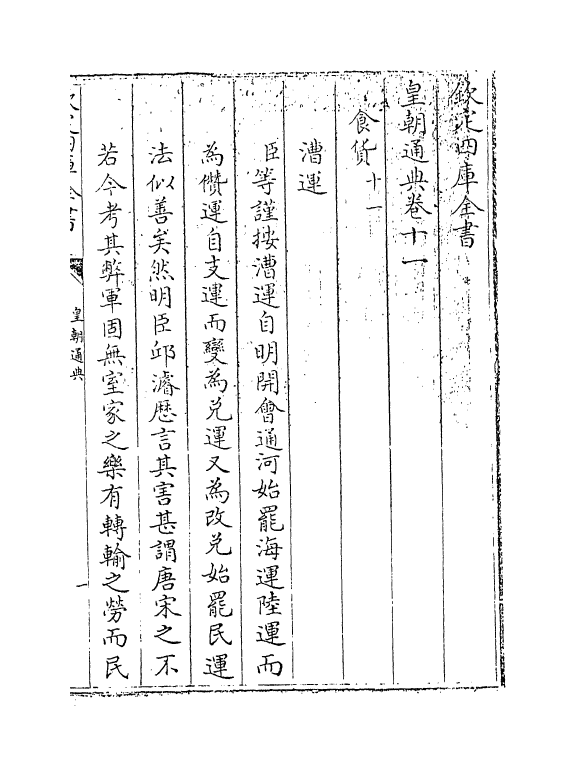 欽定四庫全書
皇朝通典卷十一
食貨十一
漕運
臣等謹按漕運自明開會通河始罷海運陸運而
為儹運自支運而變為兌運又為改兌始罷民運
法似善矣然明臣邱濬歷言其害甚謂唐宋之不
若今考其弊軍固無室家之樂有轉輸之勞而民
欽定四庫全書
皇朝通典
一